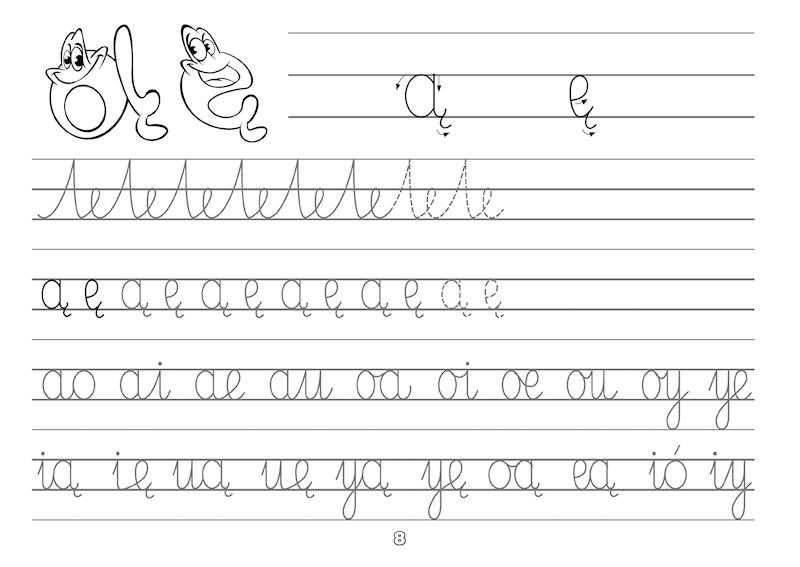 ą ę
ą ę
ą ę ą ę ą ę ą ę ą ę ą ę
ao ai ae au oa oi oe ou oy ye
ią ię uą uę yą yę oą eą ió iy
8